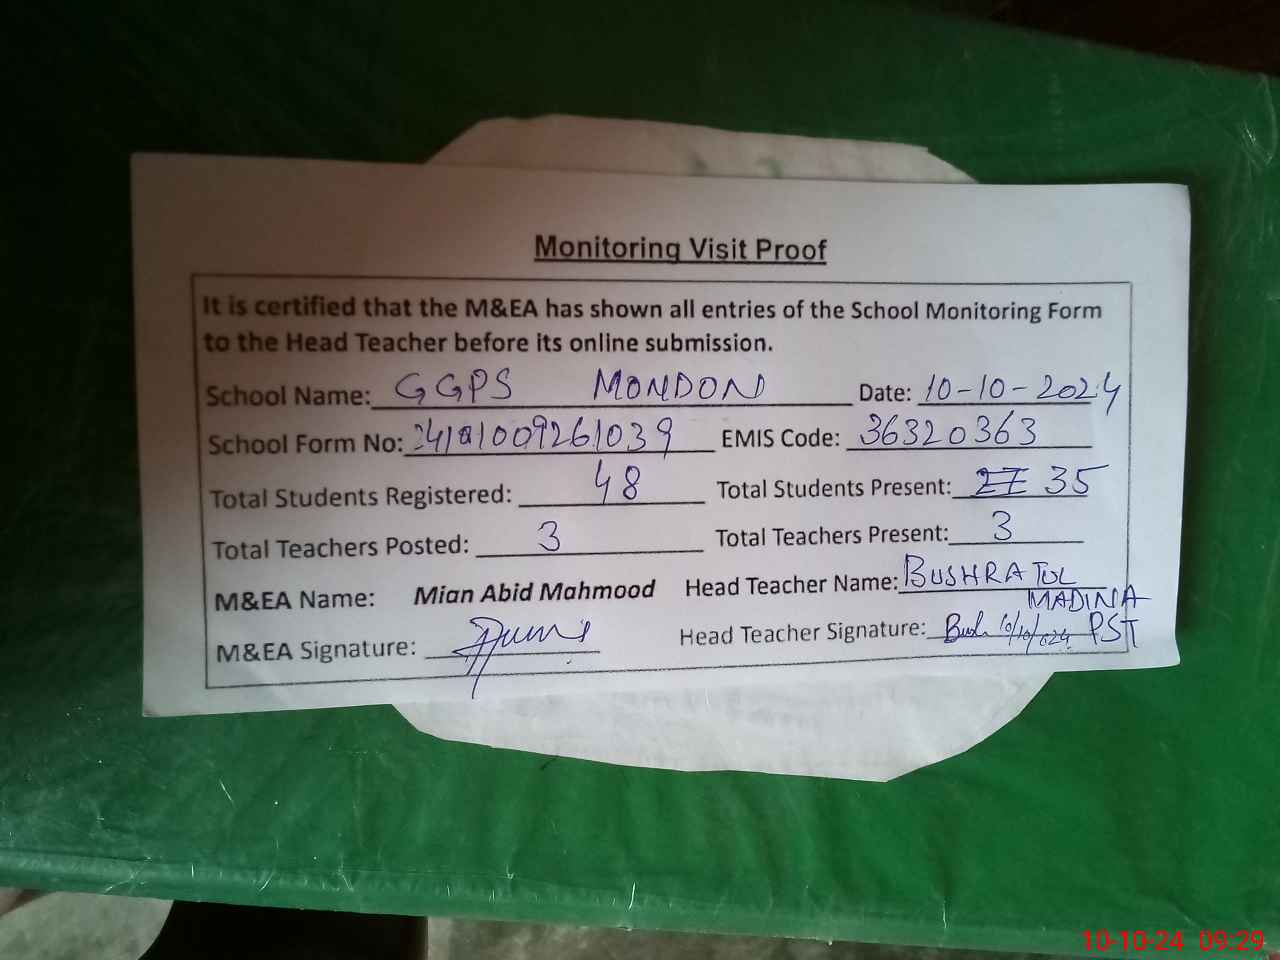 Monitoring Visit Proof
It is certified that the M&EA has shown all entries of the School Monitoring Form
to the Head Teacher before its online submission.
School Name: GGPS MONDON Date: 10-10-2024
School Form No: 24101009261039 EMIS Code: 36320363
Total Students Registered: 48 Total Students Present: 27 35
Total Teachers Posted: 3 Total Teachers Present: 3
M&EA Name: Mian Abid Mahmood Head Teacher Name: BUSHRA TUL
MADINA
M&EA Signature: Head Teacher Signature: Bush 10/10/024 PST
10-10-24 09:29